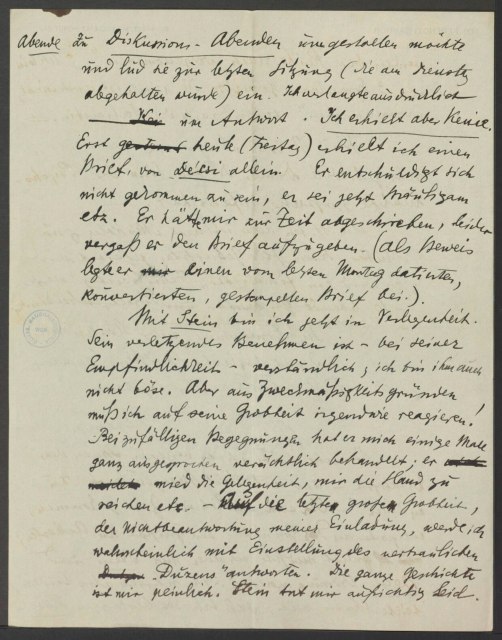 Abende zu Diskussions-Abenden umgestalten möchte
und lud sie zur letzten Sitzung (die am Dienstag
abgehalten wurde) ein. Ich verlangte ausdrücklich
um Antwort. Ich erhielt aber keine.
Erst gestern heute (Freitag) erhielt ich einen
Brief, von Décsi allein. Er entschuldigt sich
nicht gekommen zu sein, er sei jetzt Bräutigam
etz. Er hätte mir zur Zeit abgeschrieben, leider
vergaß er den Brief aufzugeben. (Als Beweis
legte er mir einen vom letzten Montag datierten,
kouvertierten, gestempelten Brief bei.).
Mit Stein bin ich jetzt in Verlegenheit.
Sein verletzendes Benehmen ist – bei seiner
Empfindlichkeit – verständlich, ich bin ihm auch
nicht böse. Aber aus Zweckmäßigkeitsgründen
muß ich auf seine Grobheit irgendwie reagieren!
Bei zufälligen Begegnungen hat er mich einige Male
ganz ausgesprochen verächtlich behandelt; er
mied die Gelegenheit, mir die Hand zu
reichen etc. – Auf die letzte große Grobheit,
der Nichtbeantwortung meiner Einladung, werde ich
wahrscheinlich mit Einstellung des vertraulichen
Duzens" antworten. Die ganze Geschichte
ist mir peinlich. Stein tut mir aufrichtig Leid.